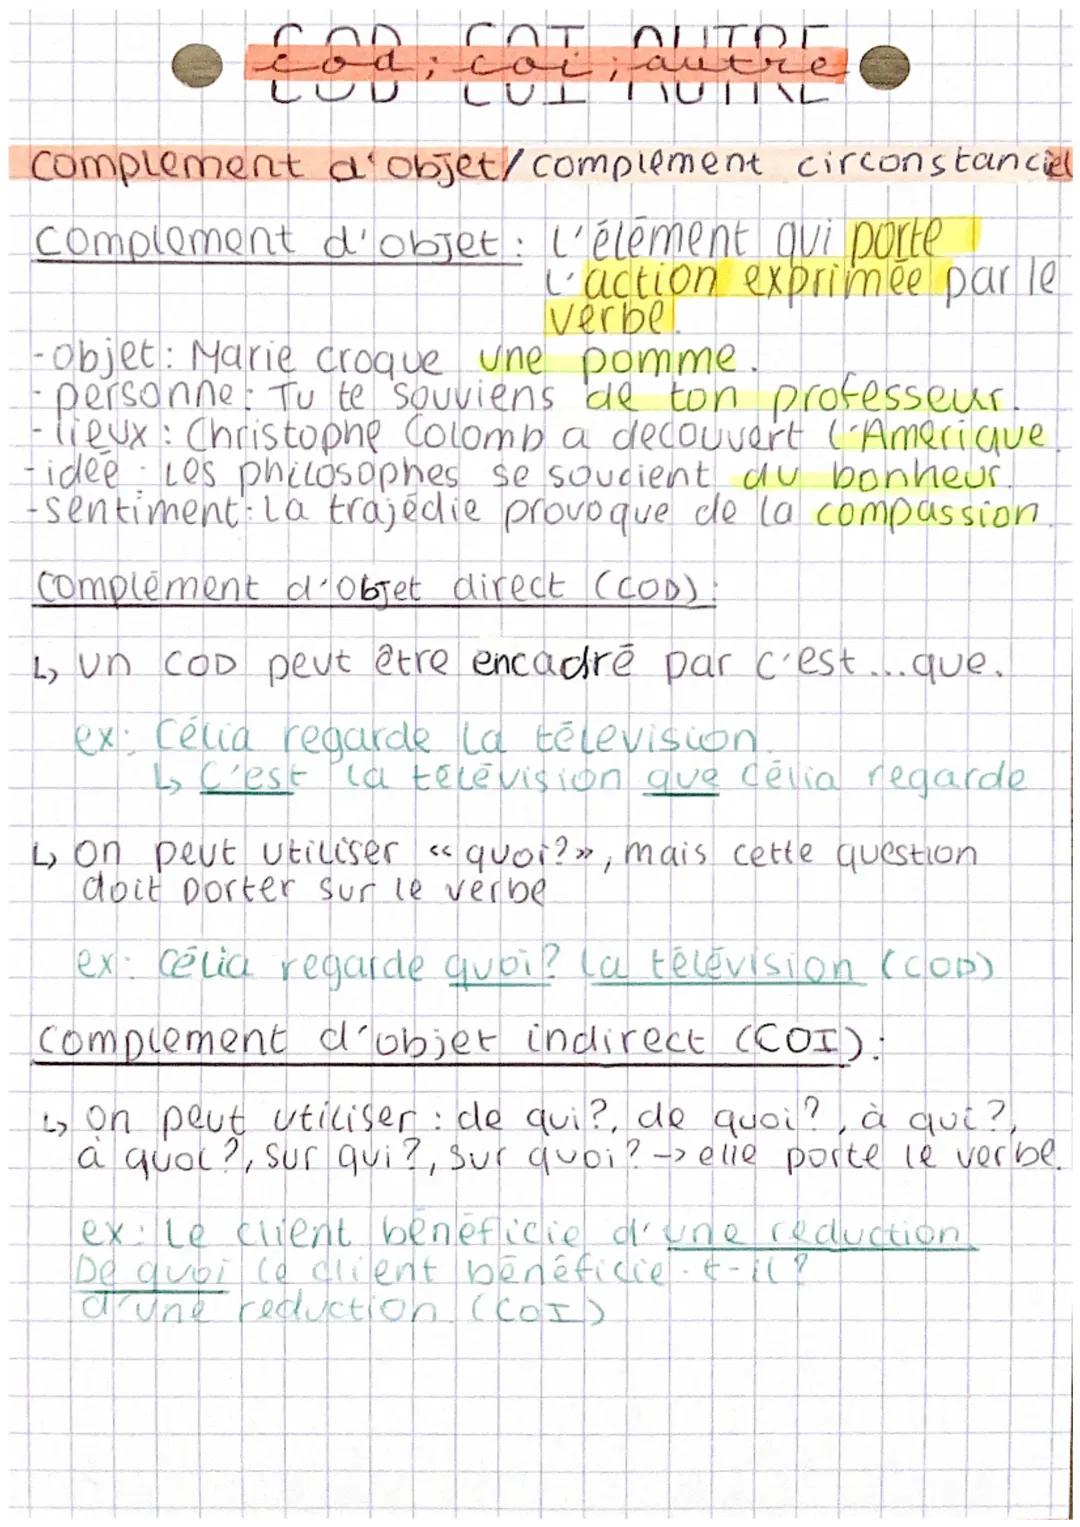 COD COI AUTRE
cod; coi; autre
complement d'objet/complement circonstanciel
complement d'objet: l'élément qui porte
l'action exprimée par le
verbe.
-objet: Marie croque une pomme.
-personne: Tu te souviens de ton professeur.
-lieux: Christophe Colomb a decouvert l'Amerique.
-idée: Les philosophes se soucient du bonheur.
-sentiment: La trajédie provoque de la compassion.
complément d'objet direct (COD):
↳ un COD peut être encadré par c'est...que.
ex: Célia regarde la télévision.
↳ C'est la télévision que célia regarde
↳ on peut utiliser «quoi?», mais cette question
doit porter sur le verbe
ex: célia regarde quoi? la télévision (COD)
complement d'objet indirect (COI):
↳ on peut utiliser: de qui?, de quoi?, à qui?,
à quoi?, sur qui?, sur quoi? -> elle porte le verbe.
ex: Le client bénéficie d'une reduction.
De quoi le client bénéficie-t-il?
d'une reduction (COI)